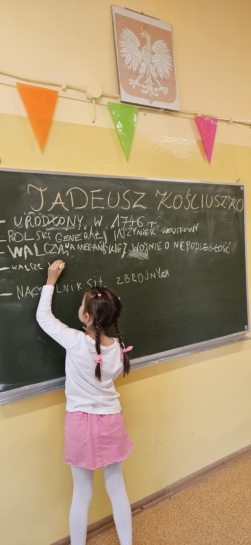 TADEUSZ KOŚCIUSZKO
- URODZONY, W 1746 r.
- POLSKI GENERAŁ, INŻYNIER WOJSKOWY
- WALCZYŁ W WOJNIE O NIEPODLEGŁOŚĆ
- NACZELNIK SIŁ ZBROJNYCH